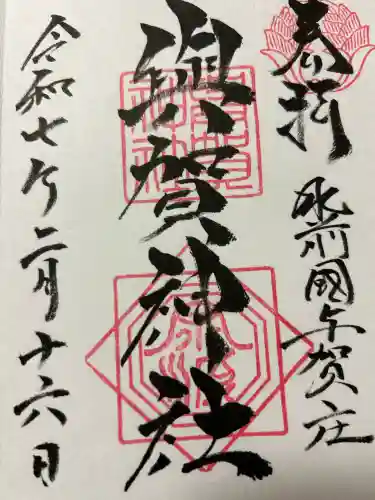 奉拝
肥前國与賀庄
與賀神社
令和七年二月十六日